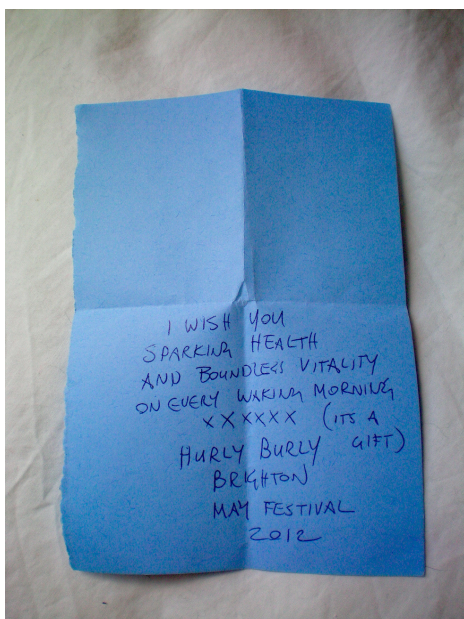 I WISH YOU
SPARKING HEALTH
AND BOUNDLESS VITALITY
ON EVERY WAKING MORNING
X X X X X X (ITS A
HURLY BURLY GIFT)
BRIGHTON
MAY FESTIVAL
2012